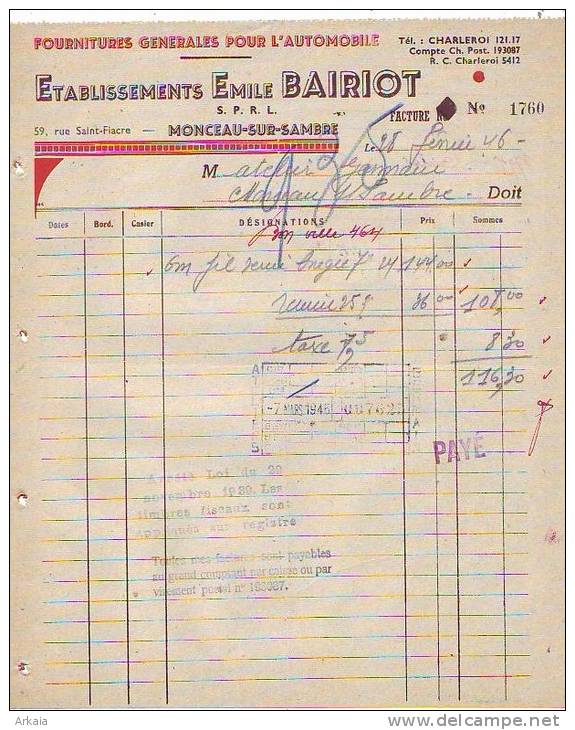 FOURNITURES GENERALES POUR L'AUTOMOBILE
Tél. : CHARLEROI 121.17
Compte Ch. Post. 193087
R. C. Charleroi 5412
ETABLISSEMENTS EMILE BAIRIOT
S. P. R. L.
FACTURE N No 1760
59, rue Saint-Fiacre — MONCEAU-SUR-SAMBRE
Le 28 46
M atelier
S/Sambre Doit
Dates Bord. Casier DÉSIGNATIONS Prix Sommes
Bon 464
6m fil 24 144,00
remise 25% 36 00 108,00
taxe 8,30
116,30
-7 MARS 1946
PAYÉ
Arrêté Loi du 29
novembre 1939. Les
timbres fiscaux sont
apposés sur registre
Toutes mes factures sont payables
au grand comptant par caisse ou par
virement postal n° 193087.
Arkaia
www.delcampe.net